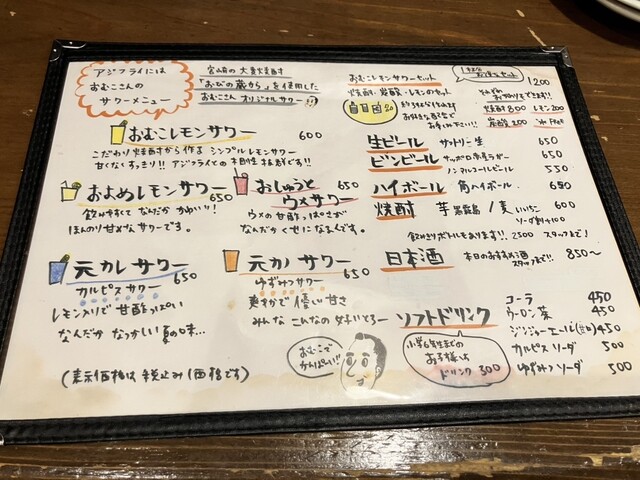 アジフライには
おむこさんの
サワーメニュー
宮崎の大麦焼酎
「おびの蔵から」を使用した
おむこさん オリジナルサワー
おむこレモンサワー 600
こだわり焼酎から作る シンプルレモンサワー
甘くなくすっきり!! アジフライとの相性抜群です!!
およめレモンサワー 650
飲みやすくて なんだか かわいい!
ほんのり甘めな サワーです。
おしゅうと
ウメサワー 650
ウメの甘酢っぱさが
なんだかくせになるんです。
元カレサワー 650
カルピスサワー
レモン入りで 甘酢っぱい
なんだか なつかしい夏の味…
元カノサワー 650
ゆずみつサワー
爽やかで 優しい甘さ
みんな こんなの
おむこで
かんぱーい!!
(表示価格は 税込み価格です)
おむこレモンサワーセット 1200
焼酎・炭酸・レモンのセット
お好きな配分で
焼酎 800 レモン 200
炭酸 200
生ビール サントリー生 650
ビンビール サッポロ赤星ラガー 650
ノンアルコールビール 550
ハイボール 角ハイボール 650
焼酎 芋 黒霧島 / 麦 いいちこ 600
ソーダ割+100
飲みきりボトルもあります!! 2500 スタッフまで!
日本酒 本日のおすすめ酒 850〜
スタッフまで!!
ソフトドリンク
小学6年生までの
お子様は
ドリンク 300
コーラ 450
ウーロン茶 450
ジンジャーエール(甘口) 450
カルピスソーダ 500
ゆずみつソーダ 500